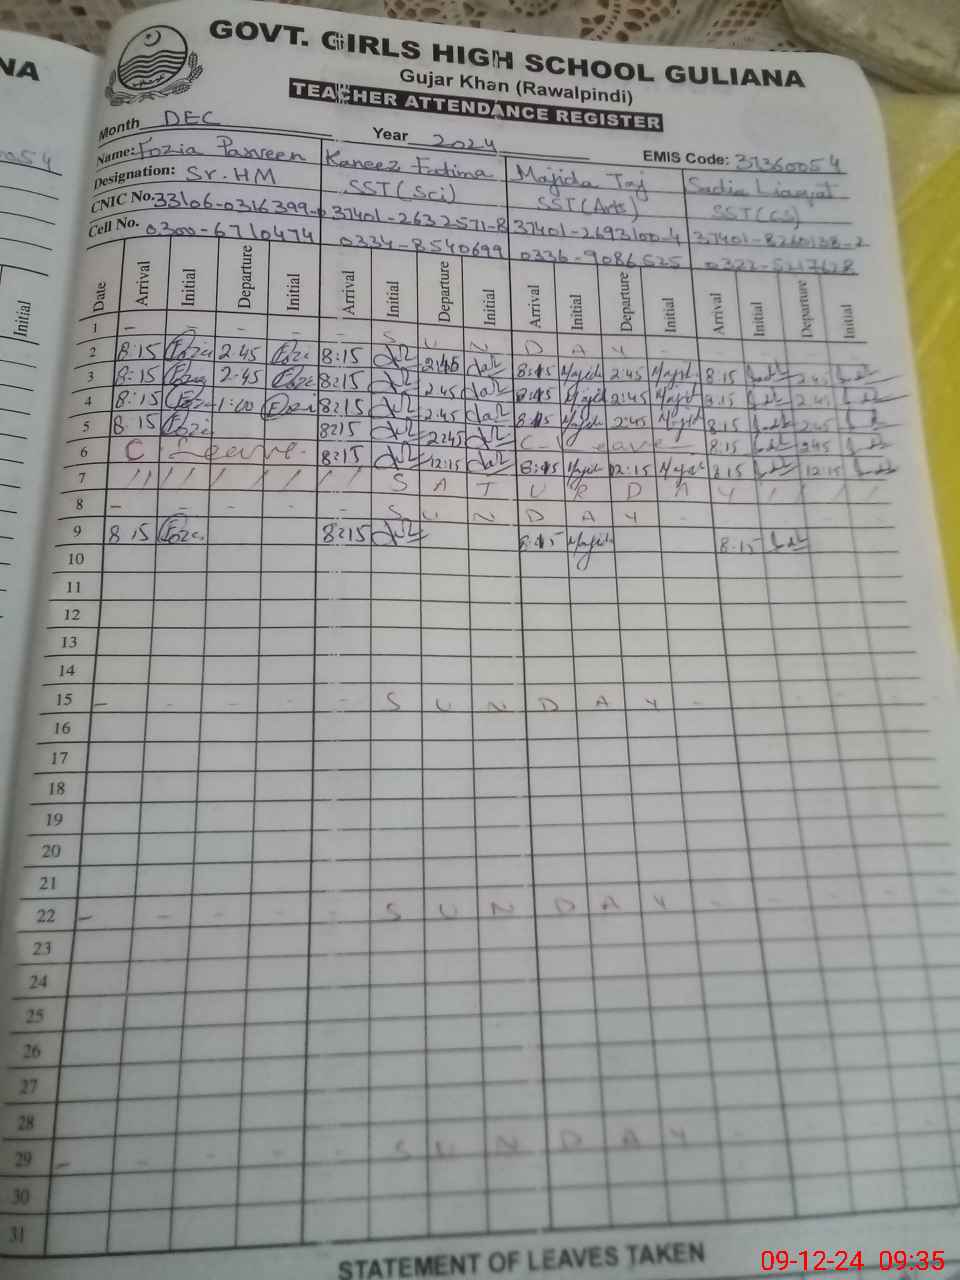 NA
GOVT. GIRLS HIGH SCHOOL GULIANA
Gujar Khan (Rawalpindi)
TEACHER ATTENDANCE REGISTER
Month DEC Year 2024 EMIS Code: 37360054
Name: Fozia Parveen Kaneez Fatima Majida Taj Sadia Liaqat
Designation: Sr. HM SST (Sci) SST (Arts) SST (CS)
CNIC No. 33106-0316399-0 37401-2632571-8 37401-2693100-4 37401-8260138-2
Cell No. 0300-6710474 0334-8540699 0336-9086525 0322-5217628
Date Arrival Initial Departure Initial Arrival Initial Departure Initial Arrival Initial Departure Initial Arrival Initial Departure Initial
1 - - - - - S U N D A Y - - - -
2 8:15 2:45 8:15 2:45 8:15 Majida 2:45 Majida 8:15 2:45
3 8:15 2:45 8:15 2:45 8:15 Majida 2:45 Majida 8:15 2:45
4 8:15 1:00 8:15 2:45 8:15 Majida 2:45 Majida 8:15 2:45
5 8:15 8:15 2:45 C - Leave 8:15 2:45
6 C Leave. 8:15 12:15 8:15 Majida 12:15 Majida 8:15 12:15
7 / / / / / / / S A T U R D A Y / / /
8 - - - - - S U N D A Y - - - -
9 8:15 8:15 8:15 Majida 8:15
10
11
12
13
14
15 - - - - - S U N D A Y - - - -
16
17
18
19
20
21
22 - - - - - S U N D A Y - - - -
23
24
25
26
27
28
29 - - - - - S U N D A Y - - - -
30
31
STATEMENT OF LEAVES TAKEN
09-12-24 09:35
0054
Initial